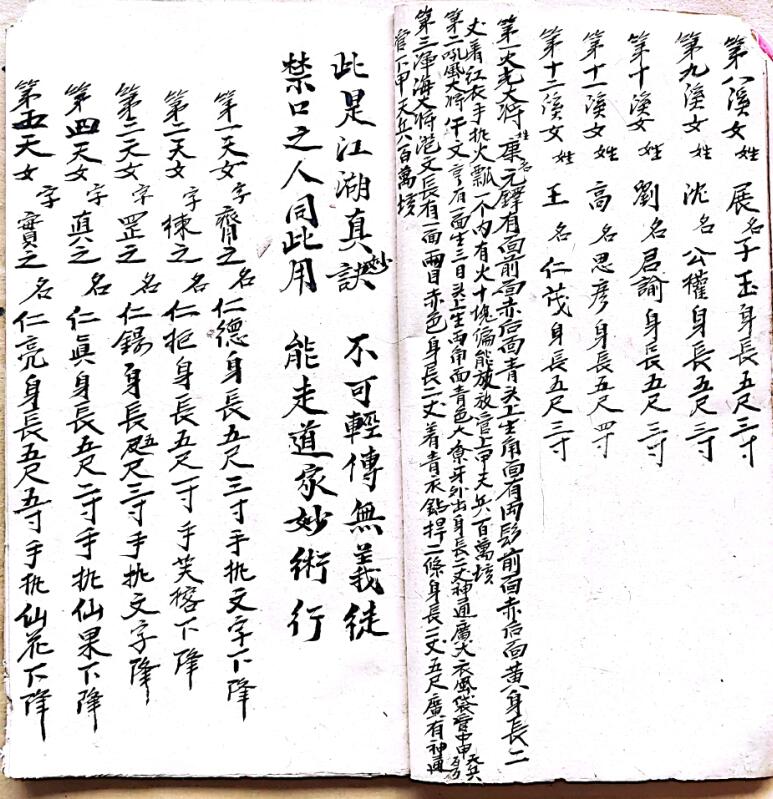 第八溪女姓 展名子玉身長五尺三寸
第九溪女姓 沈名公權身長五尺三寸
第十溪女姓 劉名君諭身長五尺三寸
第十一溪女姓 高名思彦身長五尺四寸
第十二溪女姓 王名仁茂身長五尺三寸
第一火光大将姓康名元鐸有二面前面赤后面青头上生角面有両髟前面赤后面黄身長二
丈着紅衣手执火瓢一个内有火十塊偏能放放管上甲天兵一百萬垓
第二吼風大将仵文亨有一面生三目头上生両角面青色大獠牙外出身長二丈神通廣大衣風袋管中甲天兵百万
第三渾海大将范文長有一面両目赤色身長二丈着青衣鉆捍二條身長二丈五尺廣有神通
管下甲天兵百萬垓
此是江湖真妙訣 不可輕傳無義徒
禁口之人同此用 能走道家妙術行
第一天女字齊之名仁德身長五尺三寸手执文字下降
第二天女字棟之名仁拒身長五尺一寸手芙榕下降
第三天女字罡之名仁錫身長五尺三寸手执文字降
第四天女字真之名仁真身長五尺二寸手执仙果下降
第五天女字實之名仁亮身長五尺五寸手执仙花下降